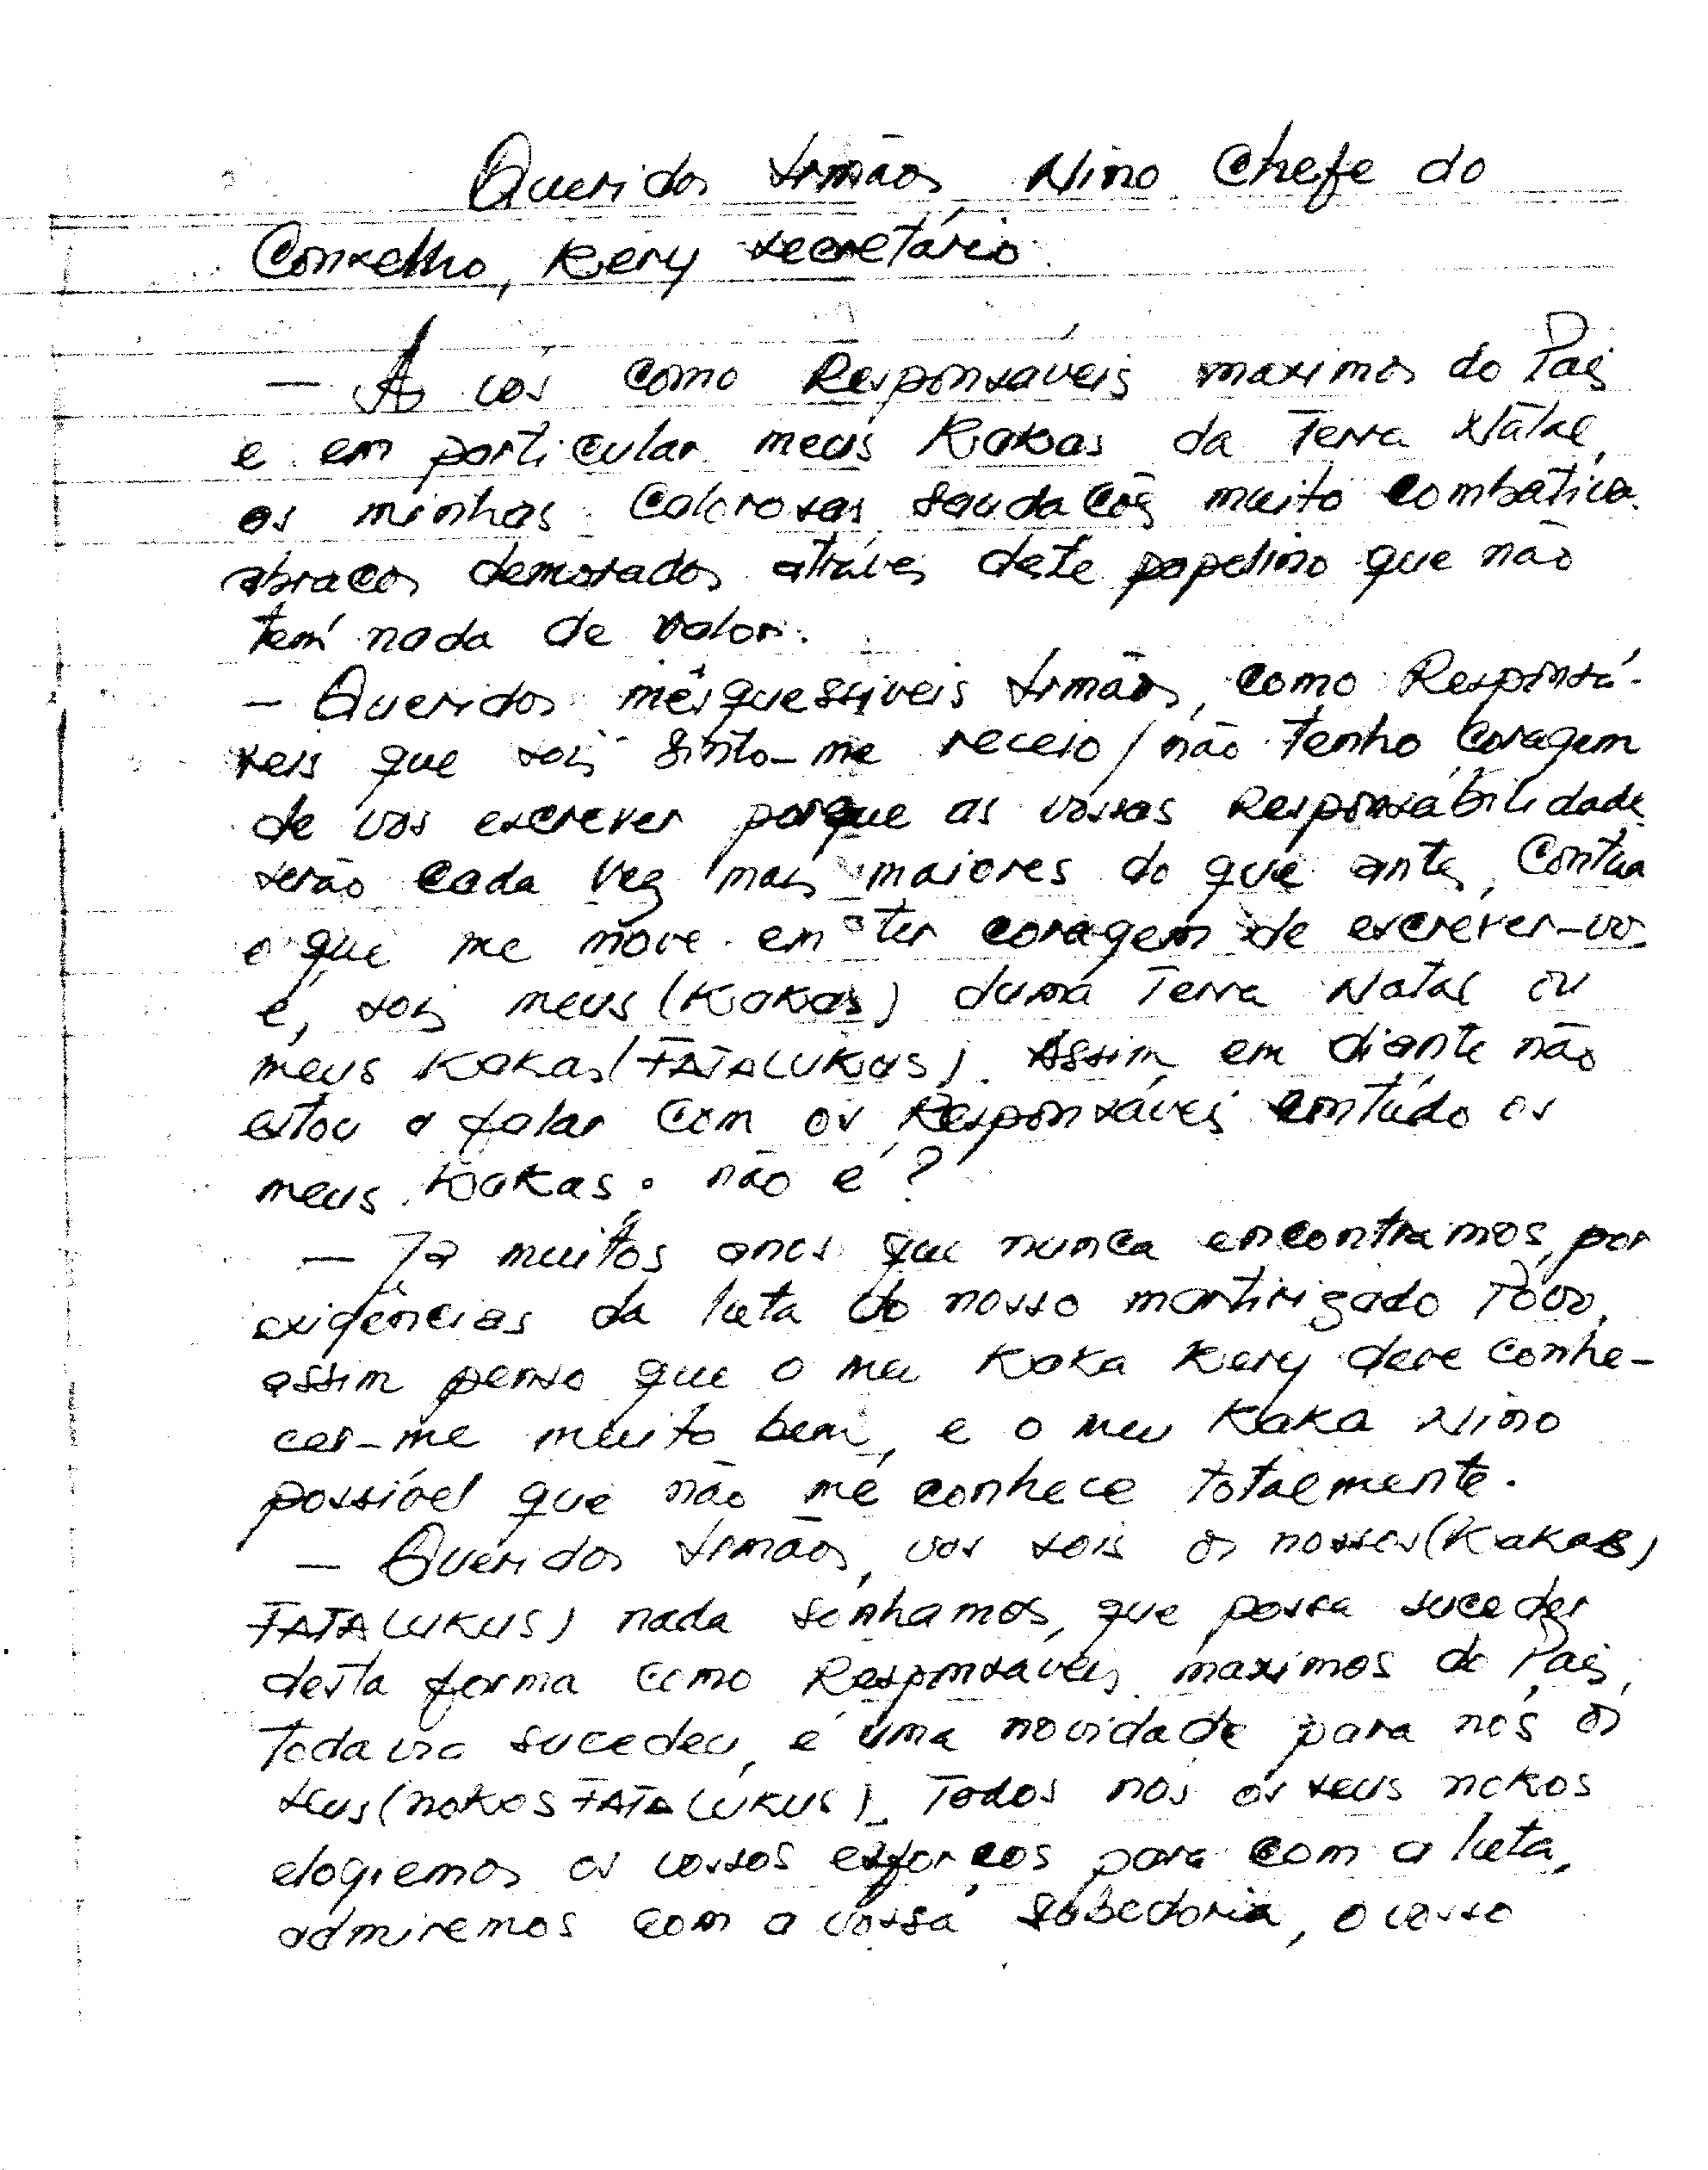 Queridos Irmãos, Nino Chefe do
Conselho, Kery Secretário.
— A vós como Responsáveis maximos do Pais
e em particular meus Kakas da Terra Nátal,
as minhas Calorosas Saudacões muito combativa.
abracos demorados através deste papelino que não
tem nada de valor.
— Queridos mêsquessiveis Irmãos, como Responsá-
veis que sois Sinto-me receio / não tenho coragem
de vos escrever porque as vossas Responsabilidade
serão cada vez mais maiores do que antes, Contua
o que me move em ter coragem de escrever-vos
é, sois meus (Kakas) duma Terra Natal ou
meus Kakas (FATALUKUS). Assim em diante não
estou a falar com os Responsáveis contúdo os
meus Kakas. não é?
— Ja muitos anos que nunca encontramos, por
exigências da luta do nosso martirizado Povo,
assim penso que o meu Kaka Kery deve conhe-
cer-me muito bem, e o meu Kaka Nino
possivel que não me conhece totalmente.
— Queridos Irmãos, vos sois os nossos (Kakas)
FATALUKUS) nada sonhamos, que possa suceder
desta forma como Responsáveis maximos do Pais,
Todavia sucedeu, é uma novidade para nós os
seus (nokos FATALUKUS). Todos nós os seus nokos
elogiemos os vossos esforcos para com a luta,
admiremos com a vossa Sabedoria, o vosso